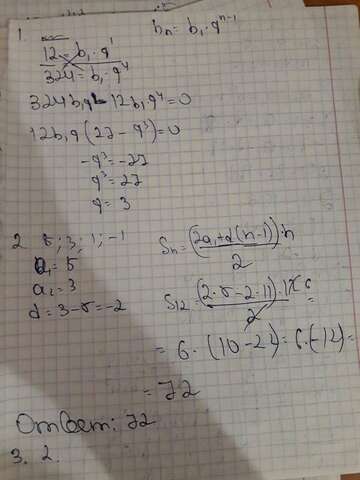 1. bn = b1 · q^n-1
12 = b1 · q^1
324 = b1 · q^4
324b1q - 12b1q^4 = 0
12b1q (27 - q^3) = 0
-q^3 = -27
q^3 = 27
q = 3
2 5; 3; 1; -1
a1 = 5
a2 = 3
d = 3 - 5 = -2
Sn = (2a1 + d(n-1)) · n / 2
S12 = (2·5 - 2·11) · 12 6 / 2 =
= 6 · (10 - 22) = 6 · (-12) =
= 72
Ответ: 72
3. 2.